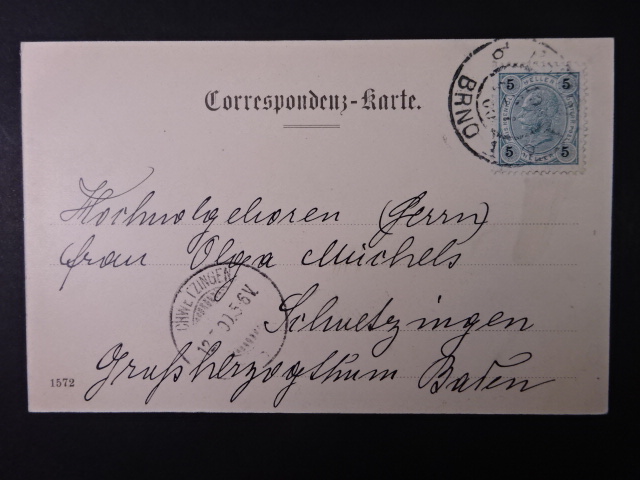 Correspondenz-Karte.
BRNO
5 5
5 5
Hochwolgeboren (Herrn)
frau Olga Michels
Schwetzingen
Großherzogthum Baden
SCHWETZINGEN
12. 00.5-6V.
1572